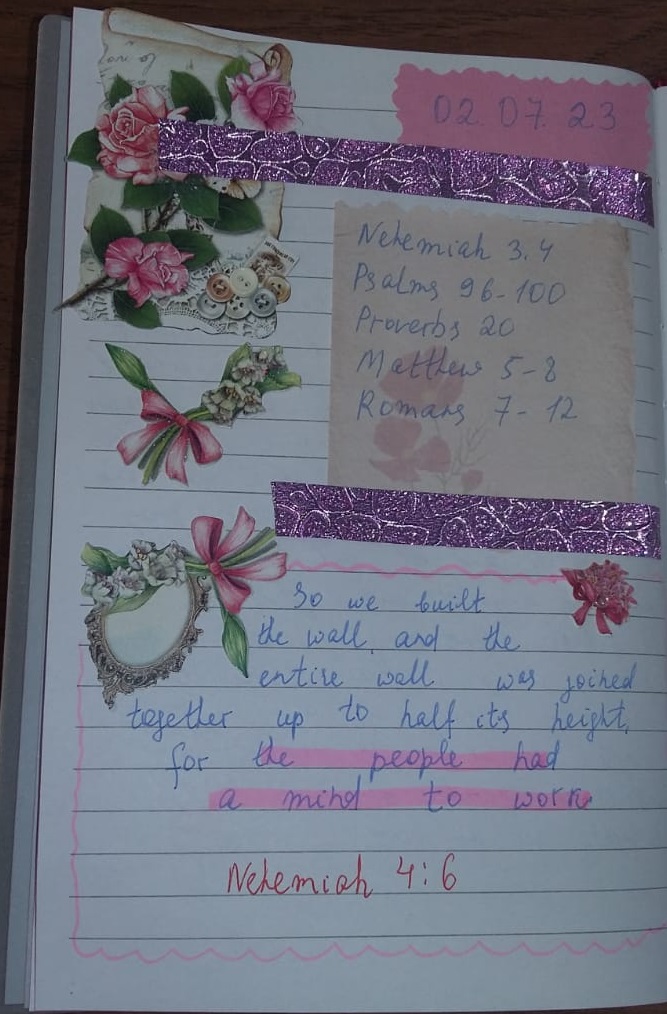 02.07.23
Nehemiah 3,4
Psalms 96-100
Proverbs 20
Matthew 5-8
Romans 7-12
So we built
the wall, and the
entire wall was joined
together up to half its height,
for the people had
a mind to work
Nehemiah 4:6